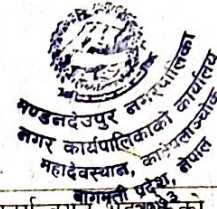 मण्डनदेउपुर नगरपालिका
नगर कार्यपालिकाको कार्यालय
महादेवस्थान, काभ्रेपलाञ्चोक
बागमती प्रदेश, नेपाल
को